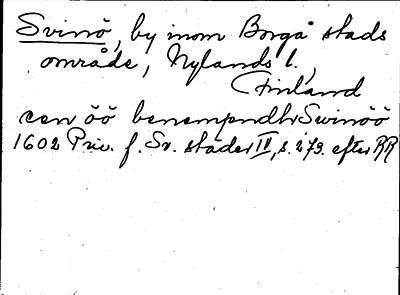 Svinö, by inom Borgå stads
område, Nylands l.,
Finland
een öö benempndh Swinöö
1602 Priv. f. Sv. städer IV, s. 273. efter RR